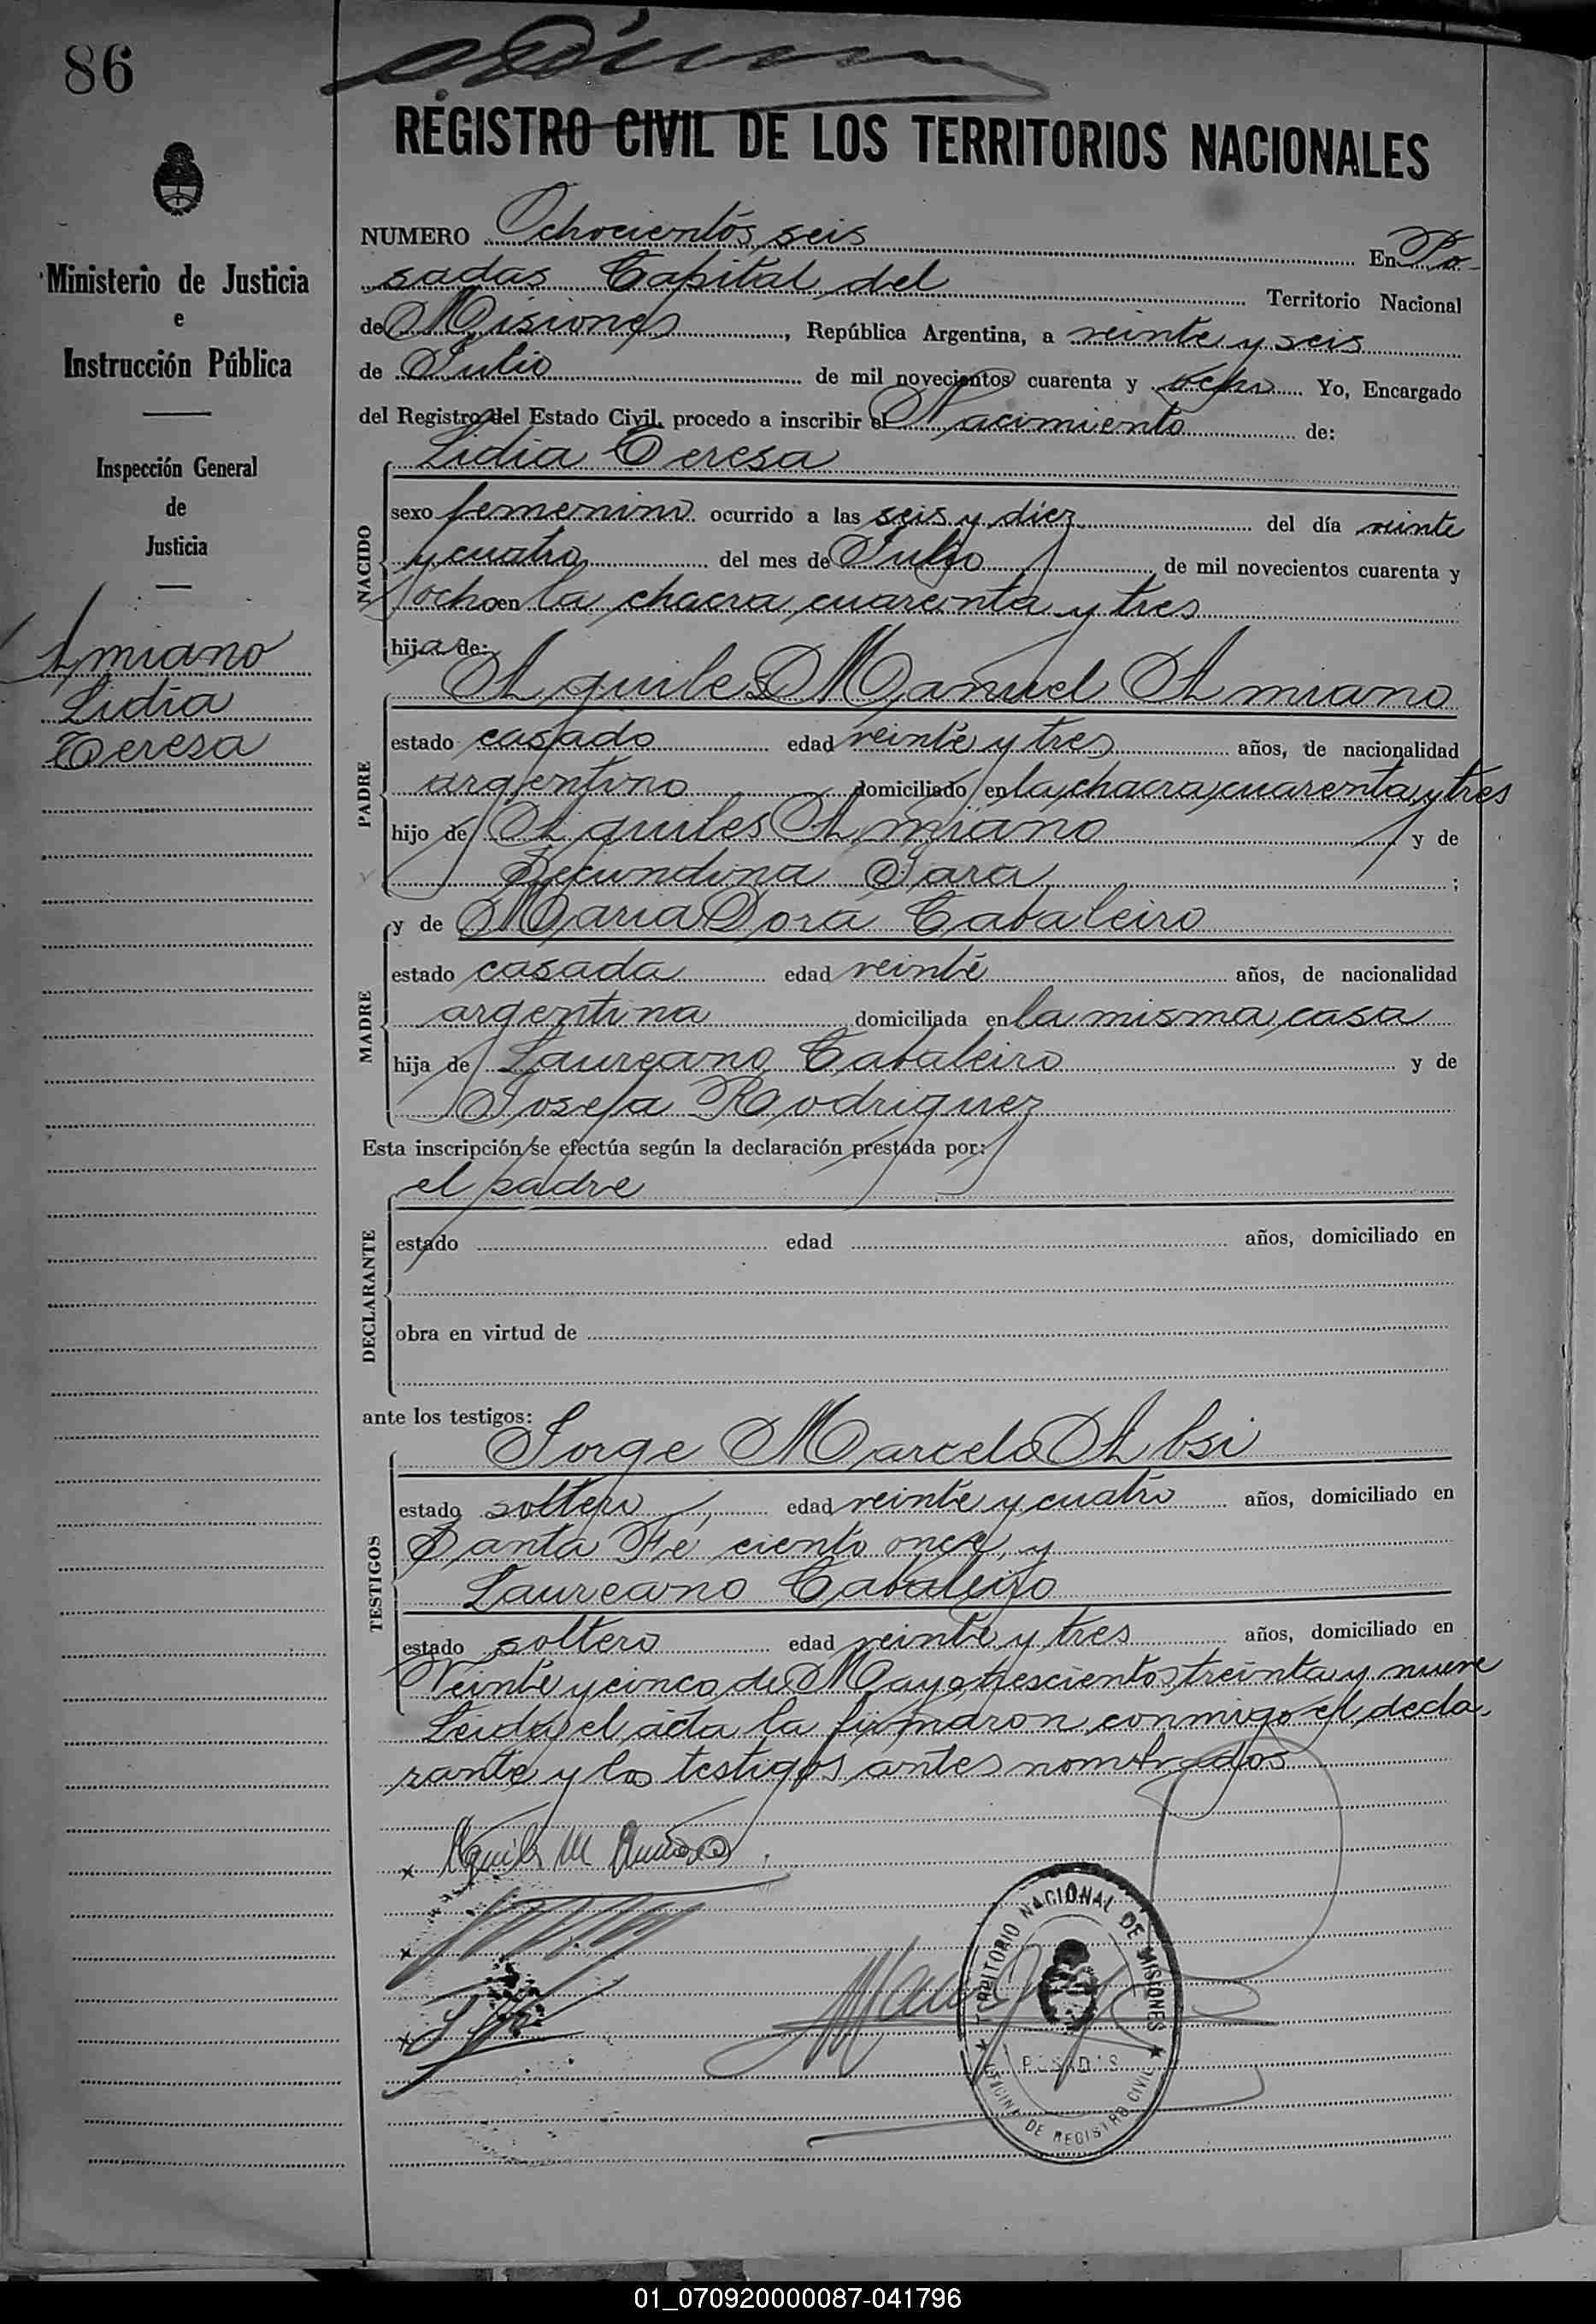 86
REGISTRO CIVIL DE LOS TERRITORIOS NACIONALES
Ministerio de Justicia
e
Instrucción Pública
Inspección General
de
Justicia
Amiano
Lidia
Teresa
NUMERO Ochocientos seis En Po-
sadas Capital del Territorio Nacional
de Misiones, República Argentina, a veinte y seis
de Julio de mil novecientos cuarenta y ocho Yo, Encargado
del Registro del Estado Civil, procedo a inscribir el Nacimiento de:
NACIDO
Lidia Teresa
sexo femenino ocurrido a las seis y diez del día veinte
y cuatro del mes de Julio de mil novecientos cuarenta y
ocho en la chacra cuarenta y tres
hija de:
PADRE
Aquiles Manuel Amiano
estado casado edad veinte y tres años, de nacionalidad
argentino domiciliado en la chacra cuarenta y tres
hijo de Aquiles Amiano y de
Secundina Sara;
MADRE
y de Maria Dora Cabaleiro
estado casada edad veinte años, de nacionalidad
argentina domiciliada en la misma casa
hija de Laureano Cabaleiro y de
Josefa Rodriguez
Esta inscripción se efectúa según la declaración prestada por:
DECLARANTE
el padre
estado edad años, domiciliado en
obra en virtud de
ante los testigos:
TESTIGOS
Jorge Marcelo Absi
estado soltero edad veinte y cuatro años, domiciliado en
Santa Fé ciento once, y
Laureano Cabaleiro
estado soltero edad veinte y tres años, domiciliado en
Veinte y cinco de Mayo trescientos treinta y nueve
Leida el acta la firmaron conmigo el decla-
rante y los testigos antes nombrados
Aquiles M Amiano
TERRITORIO NACIONAL DE MISIONES
POSADAS
OFICINA DE REGISTRO CIVIL
01_070920000087-041796